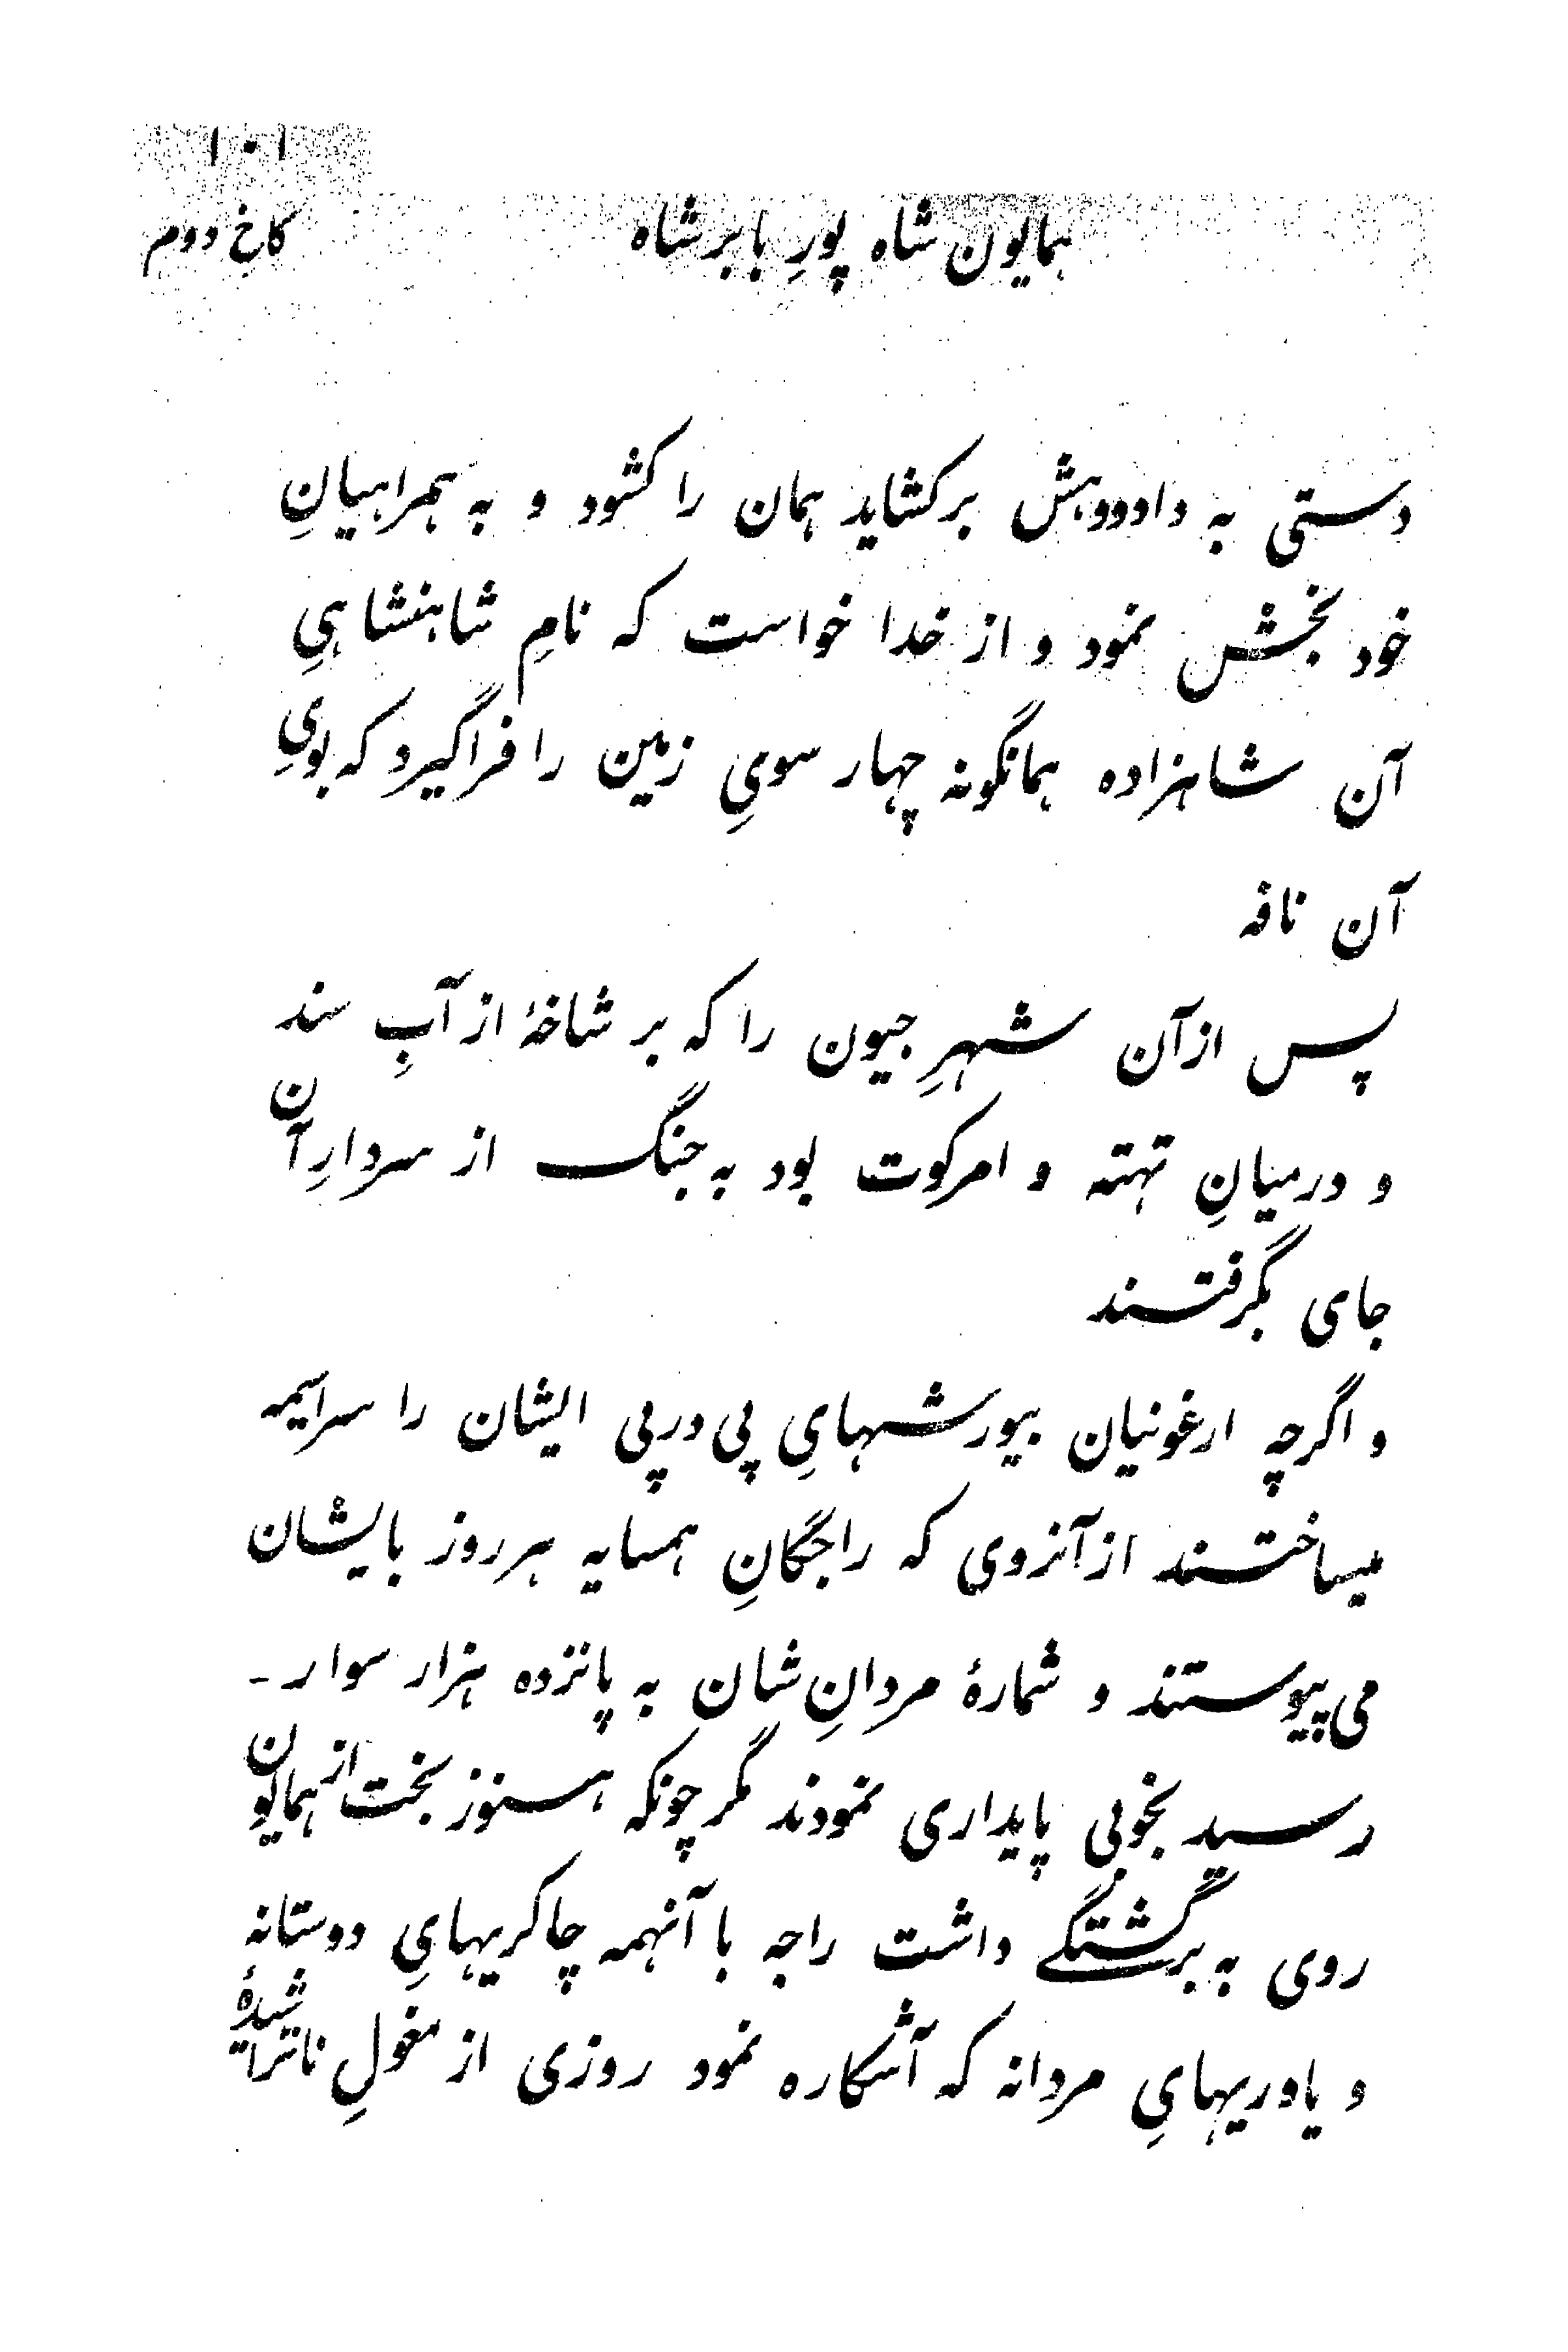 ۱۰۱
همایون شاه پورِ بابر شاه کاخ دوم
دستی به دادودهش برکشاید همان را کشود و به همراهیانِ
خود بخشش نمود و از خدا خواست که نامِ شاهنشاهیِ
آن شاهزاده همانگونه چهار سویِ زمین را فراگیرد که بویِ
آن نافه
پس ازآن شهرِ جیون را که بر شاخهٔ از آبِ سند
و درمیانِ تهته و امرکوت بود به جنگ از سردارِ آن
جای بگرفتند
و اگرچه ارغونیان بیورشهایِ پی درپی ایشان را سراسیمه
میساختند ازآنروی که راجگانِ همسایه هرروز بایشان
می پیوستند و شمارهٔ مردانِ شان به پانزده هزار سوار -
رسید بخوبی پایداری نمودند مگر چونکه هنوز بخت از همایون
روی به برگشتگے داشت راجه با آنهمه چاکریهایِ دوستانه
و یاوریهایِ مردانه که آشکاره نمود روزی از مغولِ ناتراشیدهٔ